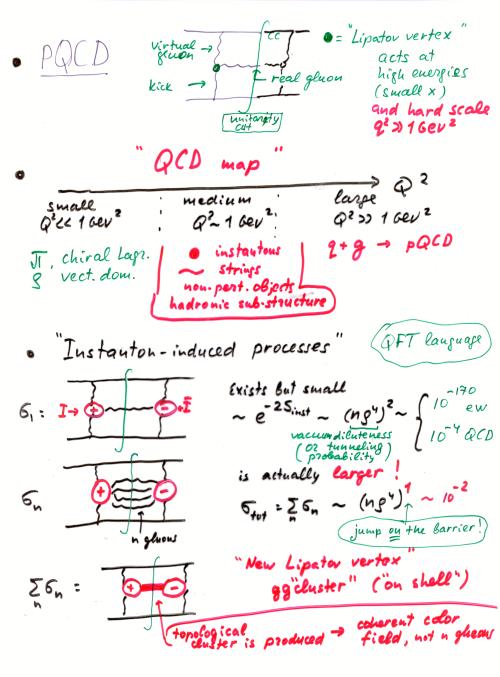 • pQCD
virtual gluon
kick
cc
real gluon
unitarity cut
● = "Lipatov vertex"
acts at
high energies
(small x)
and hard scale
q² >> 1 GeV²
• "QCD map"
Q²
small
Q² << 1 GeV²
medium
Q² ~ 1 GeV²
large
Q² >> 1 GeV²
π, chiral Lagr.
ρ vect. dom.
● instantons
~ strings
non-pert. objects
hadronic sub-structure
q + g → pQCD
• "Instanton-induced processes"
QFT language
σ₁: I → + − ← Ī
Exists but small
~ e^{-2S_inst} ~ (nρ⁴)² ~ { 10^{-170} ew
10^{-4} QCD
vacuum diluteness
(or tunneling
probability)
σn
+ −
n gluons
is actually larger!
σ_tot = Σ_n σ_n ~ (nρ⁴)¹ ~ 10^{-2}
jump on the barrier!
Σ_n σ_n =
+ −
"New Lipatov vertex"
gg "cluster" ("on shell")
topological
cluster is produced → coherent color
field, not n gluons